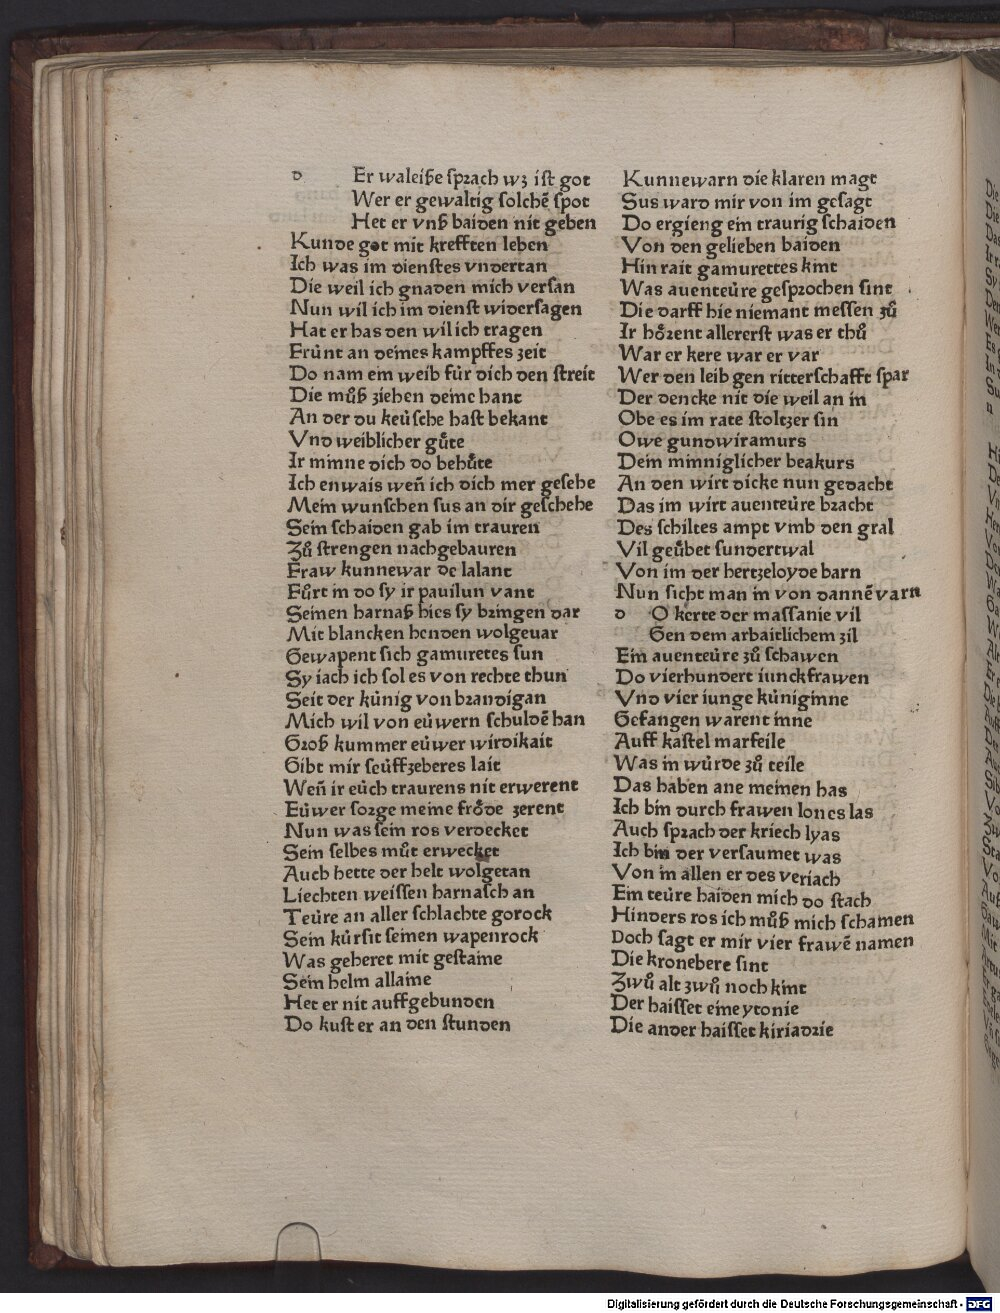 d Er waleiße sprach wz ist got
Wer er gewaltig solchē spot
Het er vnß baiden nit geben
Kunde got mit krefften leben
Ich was im dienstes vndertan
Die weil ich gnaden mich versan
Nun wil ich im dienst widersagen
Hat er has den wil ich tragen
Frünt an deines kampffes zeit
Do nam ein weib für dich den streit
Die můß ziehen deine hant
An der du keüsche hast bekant
Vnd weiblicher gůte
Ir minne dich do behůte
Ich enwais weñ ich dich mer gesehe
Mein wunschen sus an dir geschehe
Sein schaiden gab im trauren
Zů strengen nachgebauren
Fraw kunnewar de lalant
Fůrt in do sy ir pauilun vant
Seinen harnaß hies sy bringen dar
Mit blancken henden wolgeuar
Gewapent sich gamuretes sun
Sy iach ich sol es von rechte thun
Seit der künig von brandigan
Mich wil von eüwern schuldē han
Groß kummer eüwer wirdikait
Gibt mir seüffzeberes lait
Weñ ir eüch traurens nit erwerent
Eüwer sorge meine frôde zerent
Nun was sein ros verdecket
Sein selbes můt erwecket
Auch hette der helt wolgetan
Liechten weissen harnasch an
Teüre an aller schlachte gorock
Sein kürsit seinen wapenrock
Was geheret mit gestaine
Sein helm allaine
Het er nit auffgebunden
Do kust er an den stunden
Kunnewarn die klaren magt
Sus ward mir von im gesagt
Do ergieng ein traurig schaiden
Von den gelieben baiden
Hin rait gamurettes kint
Was auenteüre gesprochen sint
Die darff hie niemant messen zů
Ir hôrent allererst was er thů
War er kere war er var
Wer den leib gen ritterschafft spar
Der dencke nit die weil an in
Obe es im rate stoltzer sin
Owe gundwiramurs
Dein minniglicher beakurs
An den wirt dicke nun gedacht
Das im wirt auenteüre bracht
Des schiltes ampt vmb den gral
Vil geůbet sundertwal
Von im der hertzeloyde barn
Nun sicht man in von dannē varn
d O kerte der massanie vil
Gen dem arbaitlichem zil
Ein auenteüre zů schawen
Do vierhundert iunckfrawen
Vnd vier iunge küniginne
Gefangen warent inne
Auff kastel marfeile
Was in würde zů teile
Das haben ane meinen has
Ich bin durch frawen lones las
Auch sprach der kriech lyas
Ich bin der versaumet was
Von in allen er des veriach
Ein teüre haiden mich do stach
Hinders ros ich můß mich schamen
Doch sagt er mir vier frawē namen
Die kronebere sint
Zwů alt zwů noch kint
Der haisset eine ytonie
Die ander haisset kiriadzie
Digitalisierung gefördert durch die Deutsche Forschungsgemeinschaft - DFG